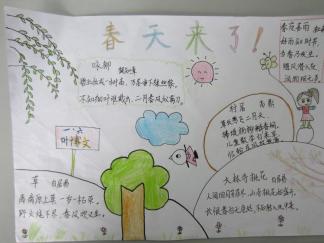 春天来了!
咏柳 贺知章
碧玉妆成一树高,万条垂下绿丝绦。
不知细叶谁裁出,二月春风似剪刀。
春夜喜雨
好雨知时节,
当春乃发生。
随风潜入夜,
润物细无声。
村居 高鼎
草长莺飞二月天,
拂堤杨柳醉春烟。
儿童散学归来早,
忙趁东风放纸鸢。
一.6
叶博文
草 白居易
离离原上草,一岁一枯荣。
野火烧不尽,春风吹又生。
大林寺桃花 白居易
人间四月芳菲尽,山寺桃花始盛开。
长恨春归无觅处,不知转入此中来。